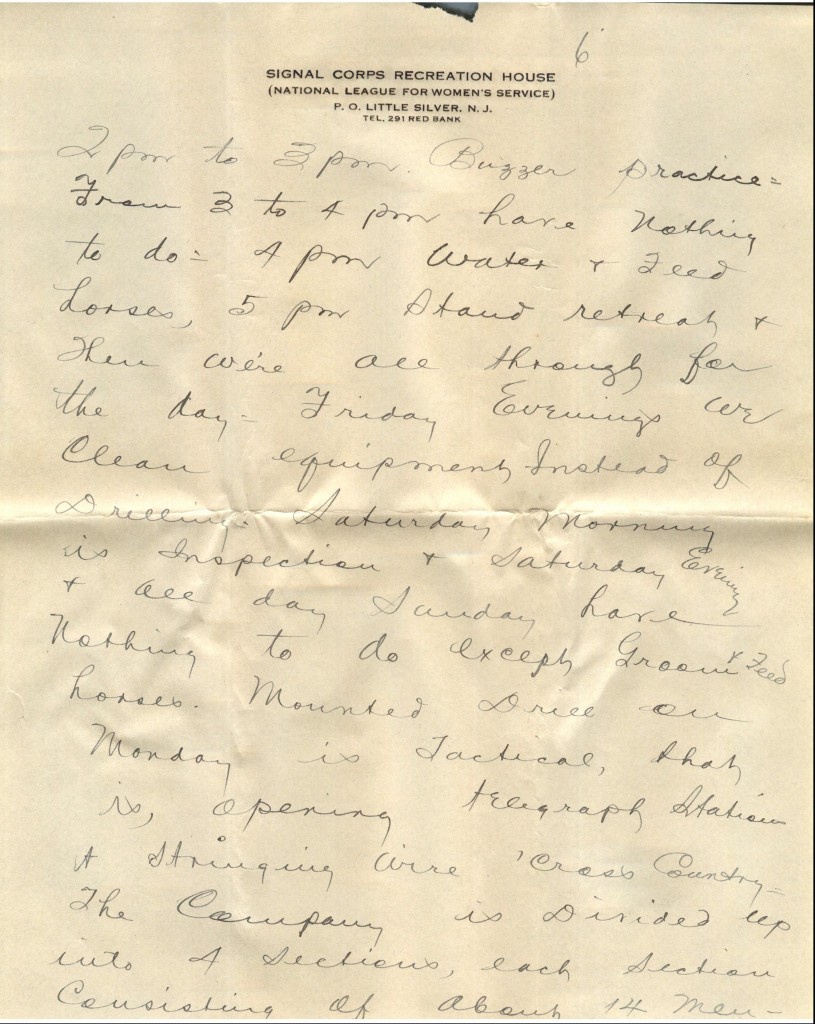 6
SIGNAL CORPS RECREATION HOUSE
(NATIONAL LEAGUE FOR WOMEN'S SERVICE)
P. O. LITTLE SILVER, N. J.
TEL. 291 RED BANK
2 pm to 3 pm. Buzzer practice=
From 3 to 4 pm have Nothing
to do= 4 pm Water + Feed
horses, 5 pm Stand retreat +
then we're all through for
the day= Friday Evenings we
Clean equipment Instead of
Drilling. Saturday Morning
is Inspection + Saturday Evening
+ all day Sunday have
Nothing to do except Groom + Feed
horses. Mounted Drill on
Monday is Tactical, that
is, opening telegraph Stations
+ Stringing Wire 'Cross Country=
The Company is Divided up
into 4 Sections, each Section
Consisting of About 14 Men=